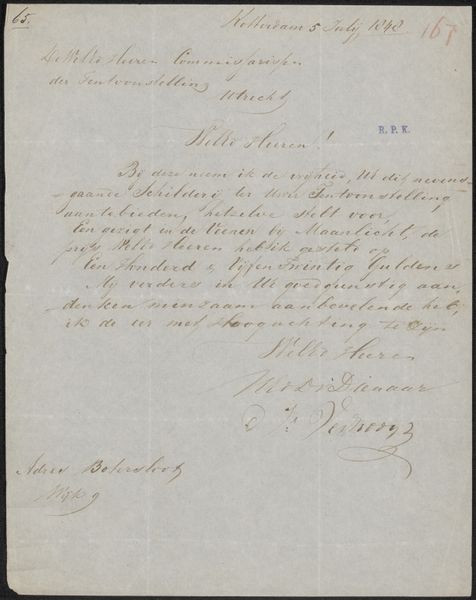 65.
Rotterdam 5 July 1848
167
De WelEd Heeren Commissarissen
der Tentoonstelling
Utrecht
R. P. K.
WelEd Heeren!
Bij deze neem ik de vrijheid, UE dit nevens-
gaande Schilderij ter Uwer Tentoonstelling
aantebieden, hetzelve stelt voor,
Een gezigt in de Veenen bij Maanlicht, de
prijs WelEd Heeren heb ik gesteld op
Een Honderd & Vijf en Twintig Guldens
Mij verders in UE goedgunstig aan-
denken minzaam aanbevelende heb,
ik de eer met Hoogachting te Zijn
WelEd Heeren
UEd Dv Dienaar
Adres Botersloot
Wijk 9